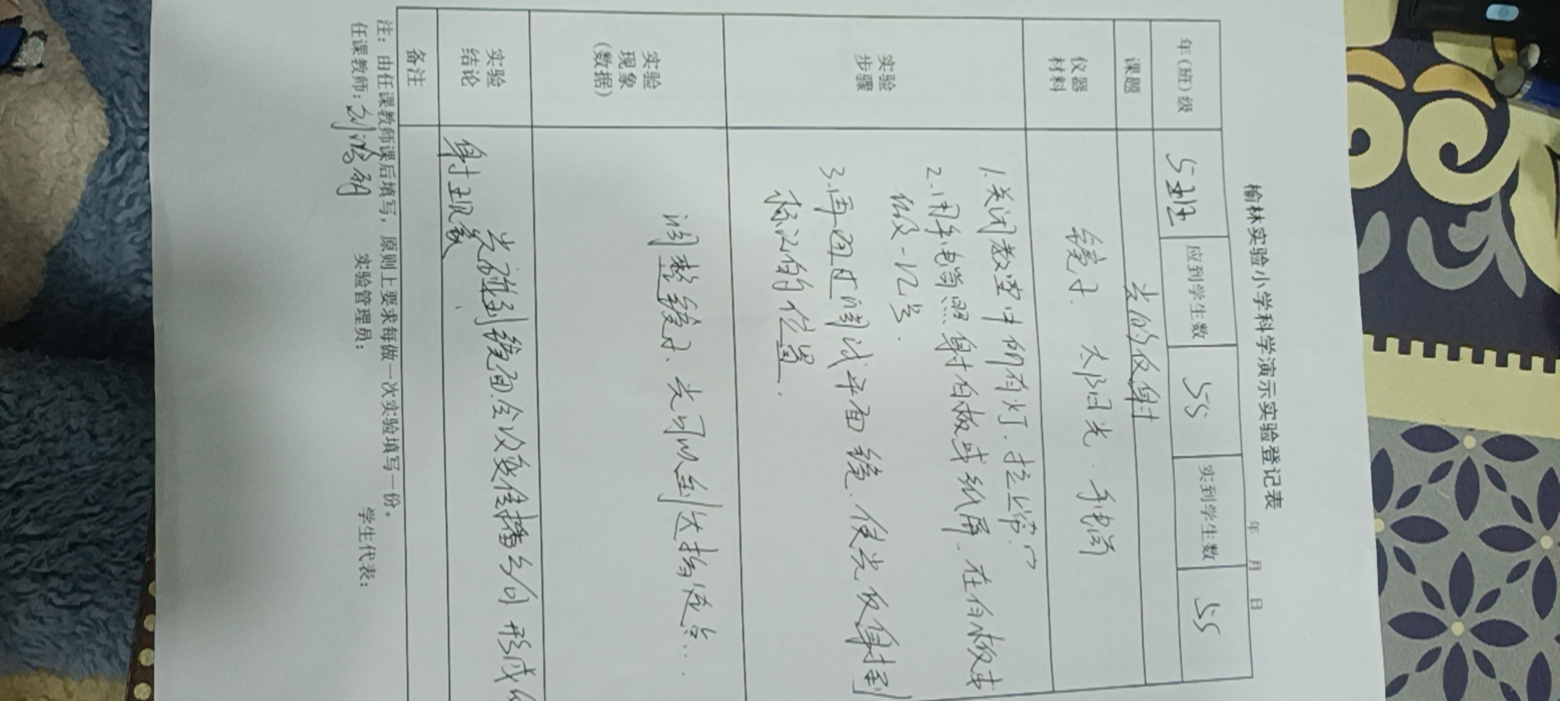 榆林实验小学科学演示实验登记表
年 月 日
年(班)级 5班 应到学生数 55 实到学生数 55
课题 光的反射
仪器材料 镜子、太阳光、手电筒
实验步骤
1.关闭教室中所有灯、拉上帘
2.用手电筒照射白板或纸屏、在白板中
做一记号.
3.再通过调试平面镜、使光反射到
标记的位置.
实验现象(数据)
调整镜子、光可以到达指定点..
实验结论
光碰到镜面会改变传播方向形成
射现象
备注
注：由任课教师课后填写，原则上要求每做一次实验填写一份。
任课教师： 实验管理员： 学生代表：